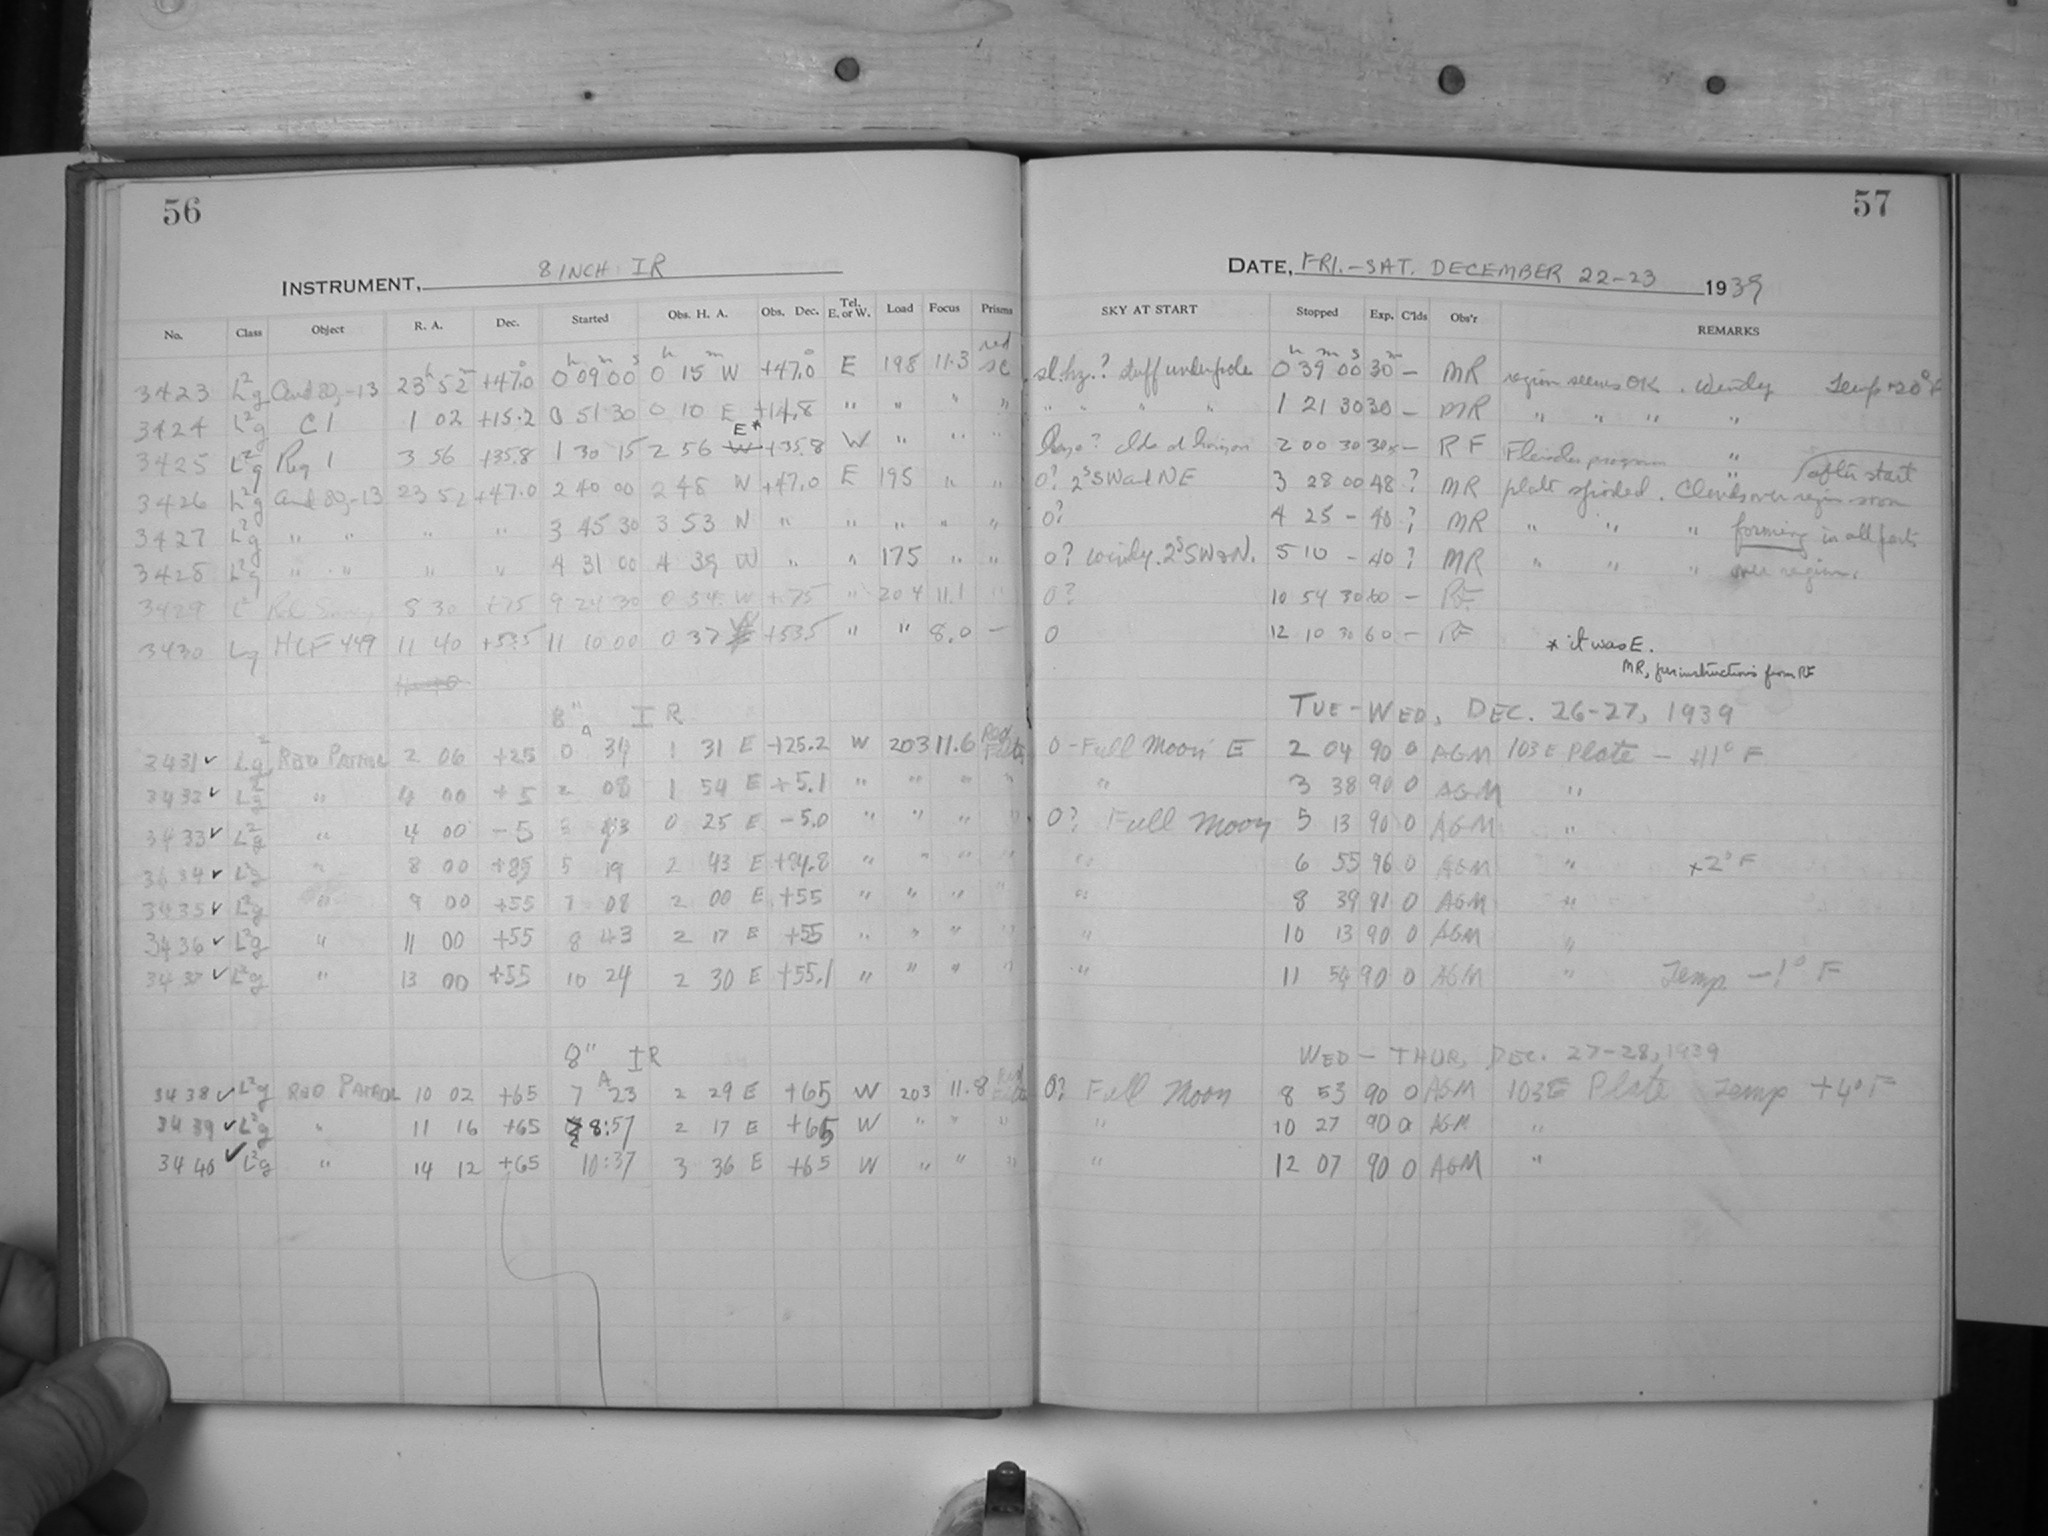 56
INSTRUMENT, 8 INCH IR
No. Class Object R. A. Dec. Started Obs. H. A. Obs. Dec. Tel. E. or W. Load Focus Prisms
3423 L²g 23h 52m +47.0 0h 09m 00s 0h 15m W +47.0° E 198 11.3 red
3424 L²g C1 1 02 +15.2 0 51 30 0 10 E +14.8 " " " "
3425 L²g Reg 1 3 56 +35.8 1 30 15 2 56 W E* +35.8 W " " "
3426 L²g 23 52 +47.0 2 40 00 2 48 W +47.0 E 195 " "
3427 L²g " " " " 3 45 30 3 53 W " " " " "
3428 L²g " " " " 4 31 00 4 39 W " " 175 " "
3429 L² 8 30 +75 9 24 30 0 54 W +75 " 204 11.1 "
3430 Lg HCF 449 11 40 +53.5 11 10 00 0 37 W +53.5 " " 8.0 —
8" IR
3431 ✓ L²g RED PATROL 2 06 +25 0 34 1 31 E +25.2 W 203 11.6 Red Filter
3432 ✓ L²g " 4 00 +5 2 08 1 54 E +5.1 " " " "
3433 ✓ L²g " 4 00 -5 3 43 0 25 E -5.0 " " " "
3434 ✓ L²g " 8 00 +85 5 19 2 43 E +84.8 " " " "
3435 ✓ L²g " 9 00 +55 7 08 2 00 E +55 " " " "
3436 ✓ L²g " 11 00 +55 8 43 2 17 E +55 " " " "
3437 ✓ L²g " 13 00 +55 10 24 2 30 E +55.1 " " " "
8" IR
3438 ✓ L²g RED PATROL 10 02 +65 7 23 2 29 E +65 W 203 11.8 Red Filter
3439 ✓ L²g " 11 16 +65 8:57 2 17 E +65 W " " "
3440 ✓ L²g " 14 12 +65 10:37 3 36 E +65 W " " "
57
DATE, FRI.-SAT. DECEMBER 22-23 1939
SKY AT START Stopped Exp. C'lds Obs'r REMARKS
sl. hz.? stuff under pole 0h 39m 00s 30m — MR region seems OK. Windy Temp +20° F
" " " " 1 21 30 30 — MR " " " "
haze? clds at horizon 2 00 30 — RF program "
0? 2s SW and NE 3 28 00 48 ? MR plate spoiled. Clouds over region soon after start
0? 4 25 — 40 ? MR " " " forming in all parts
0? windy. 2s SW & N. 5 10 — 40 ? MR " " " over region.
0? 10 54 30 — RF
0 12 10 30 60 — RF
* it was E.
MR, per instructions from RF
TUE-WED, DEC. 26-27, 1939
0 - Full Moon E 2 04 90 0 AGM 103E Plate — +11° F
" 3 38 90 0 AGM "
0? Full Moon 5 13 90 0 AGM "
" 6 55 96 0 AGM " +2° F
" 8 39 91 0 AGM "
" 10 13 90 0 AGM "
" 11 54 90 0 AGM " Temp -1° F
WED - THUR, DEC. 27-28, 1939
0? Full Moon 8 53 90 0 AGM 103E Plate Temp +4° F
" 10 27 90 0 AGM "
" 12 07 90 0 AGM "